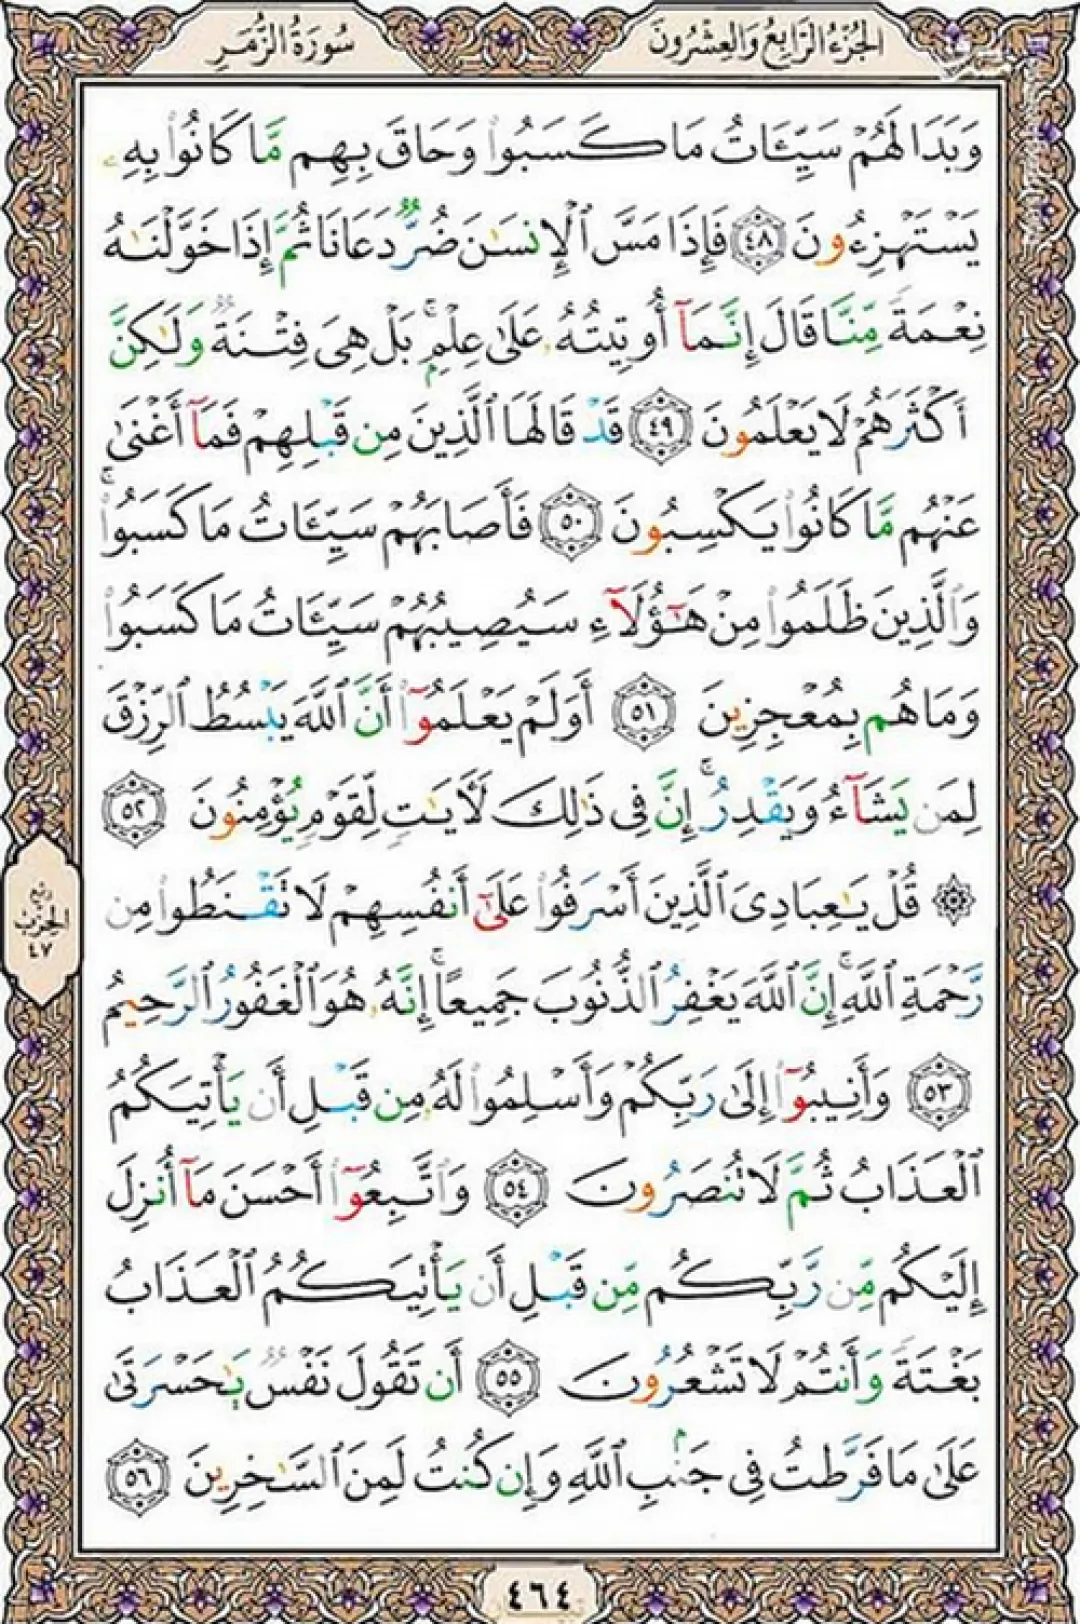 الجُزْءُ الرَّابِعُ وَالعِشْرُونَ
سُورَةُ الزُّمَرِ
وَبَدَا لَهُمْ سَيِّـَٔاتُ مَا كَسَبُوا۟ وَحَاقَ بِهِم مَّا كَانُوا۟ بِهِۦ
يَسْتَهْزِءُونَ ٤٨ فَإِذَا مَسَّ ٱلْإِنسَـٰنَ ضُرٌّ دَعَانَا ثُمَّ إِذَا خَوَّلْنَـٰهُ
نِعْمَةً مِّنَّا قَالَ إِنَّمَآ أُوتِيتُهُۥ عَلَىٰ عِلْمٍۭ ۚ بَلْ هِىَ فِتْنَةٌ وَلَـٰكِنَّ
أَكْثَرَهُمْ لَا يَعْلَمُونَ ٤٩ قَدْ قَالَهَا ٱلَّذِينَ مِن قَبْلِهِمْ فَمَآ أَغْنَىٰ
عَنْهُم مَّا كَانُوا۟ يَكْسِبُونَ ٥٠ فَأَصَابَهُمْ سَيِّـَٔاتُ مَا كَسَبُوا۟ ۚ
وَٱلَّذِينَ ظَلَمُوا۟ مِنْ هَـٰٓؤُلَآءِ سَيُصِيبُهُمْ سَيِّـَٔاتُ مَا كَسَبُوا۟
وَمَا هُم بِمُعْجِزِينَ ٥١ أَوَلَمْ يَعْلَمُوٓا۟ أَنَّ ٱللَّهَ يَبْسُطُ ٱلرِّزْقَ
لِمَن يَشَآءُ وَيَقْدِرُ ۚ إِنَّ فِى ذَٰلِكَ لَـَٔايَـٰتٍ لِّقَوْمٍ يُؤْمِنُونَ ٥٢
۞ قُلْ يَـٰعِبَادِىَ ٱلَّذِينَ أَسْرَفُوا۟ عَلَىٰٓ أَنفُسِهِمْ لَا تَقْنَطُوا۟ مِن
رَّحْمَةِ ٱللَّهِ ۚ إِنَّ ٱللَّهَ يَغْفِرُ ٱلذُّنُوبَ جَمِيعًا ۚ إِنَّهُۥ هُوَ ٱلْغَفُورُ ٱلرَّحِيمُ
٥٣ وَأَنِيبُوٓا۟ إِلَىٰ رَبِّكُمْ وَأَسْلِمُوا۟ لَهُۥ مِن قَبْلِ أَن يَأْتِيَكُمُ
ٱلْعَذَابُ ثُمَّ لَا تُنصَرُونَ ٥٤ وَٱتَّبِعُوٓا۟ أَحْسَنَ مَآ أُنزِلَ
إِلَيْكُم مِّن رَّبِّكُم مِّن قَبْلِ أَن يَأْتِيَكُمُ ٱلْعَذَابُ
بَغْتَةً وَأَنتُمْ لَا تَشْعُرُونَ ٥٥ أَن تَقُولَ نَفْسٌ يَـٰحَسْرَتَىٰ
عَلَىٰ مَا فَرَّطتُ فِى جَنۢبِ ٱللَّهِ وَإِن كُنتُ لَمِنَ ٱلسَّـٰخِرِينَ ٥٦
رُبْع
الحِزْب
٤٧
٤٦٤